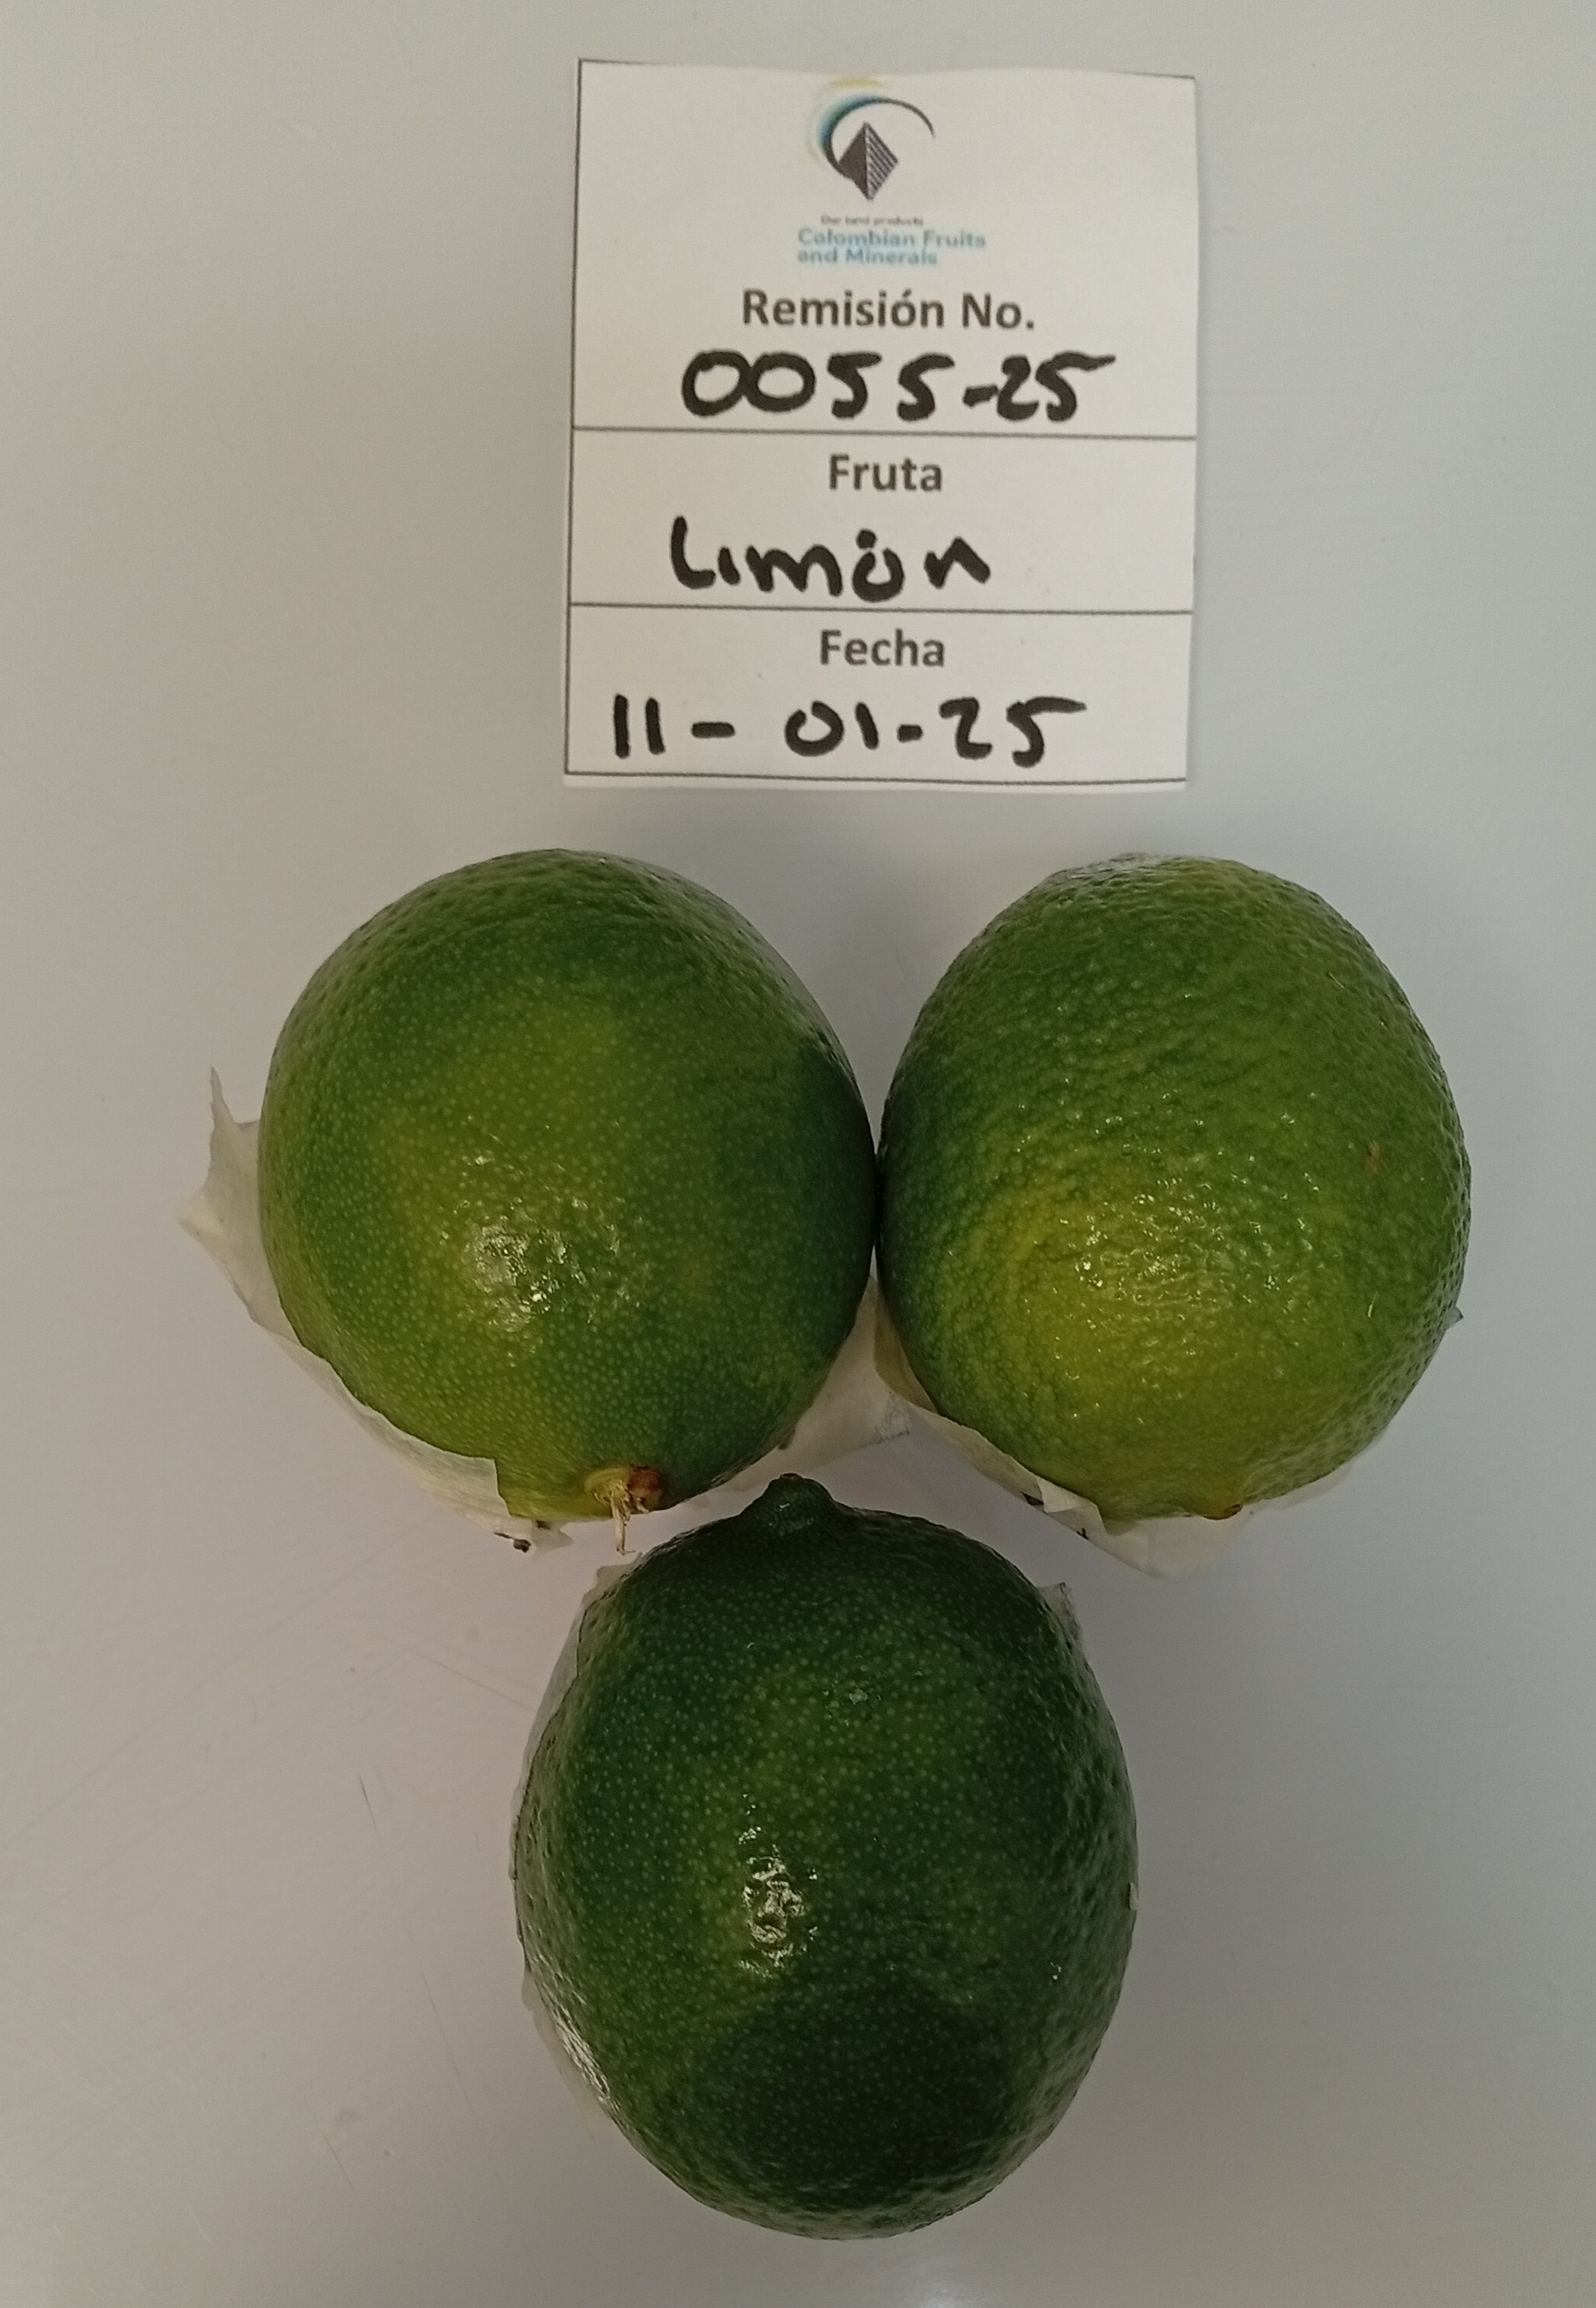 Our land products
Colombian Fruits
and Minerals
Remisión No.
0055-25
Fruta
Limón
Fecha
11-01-25